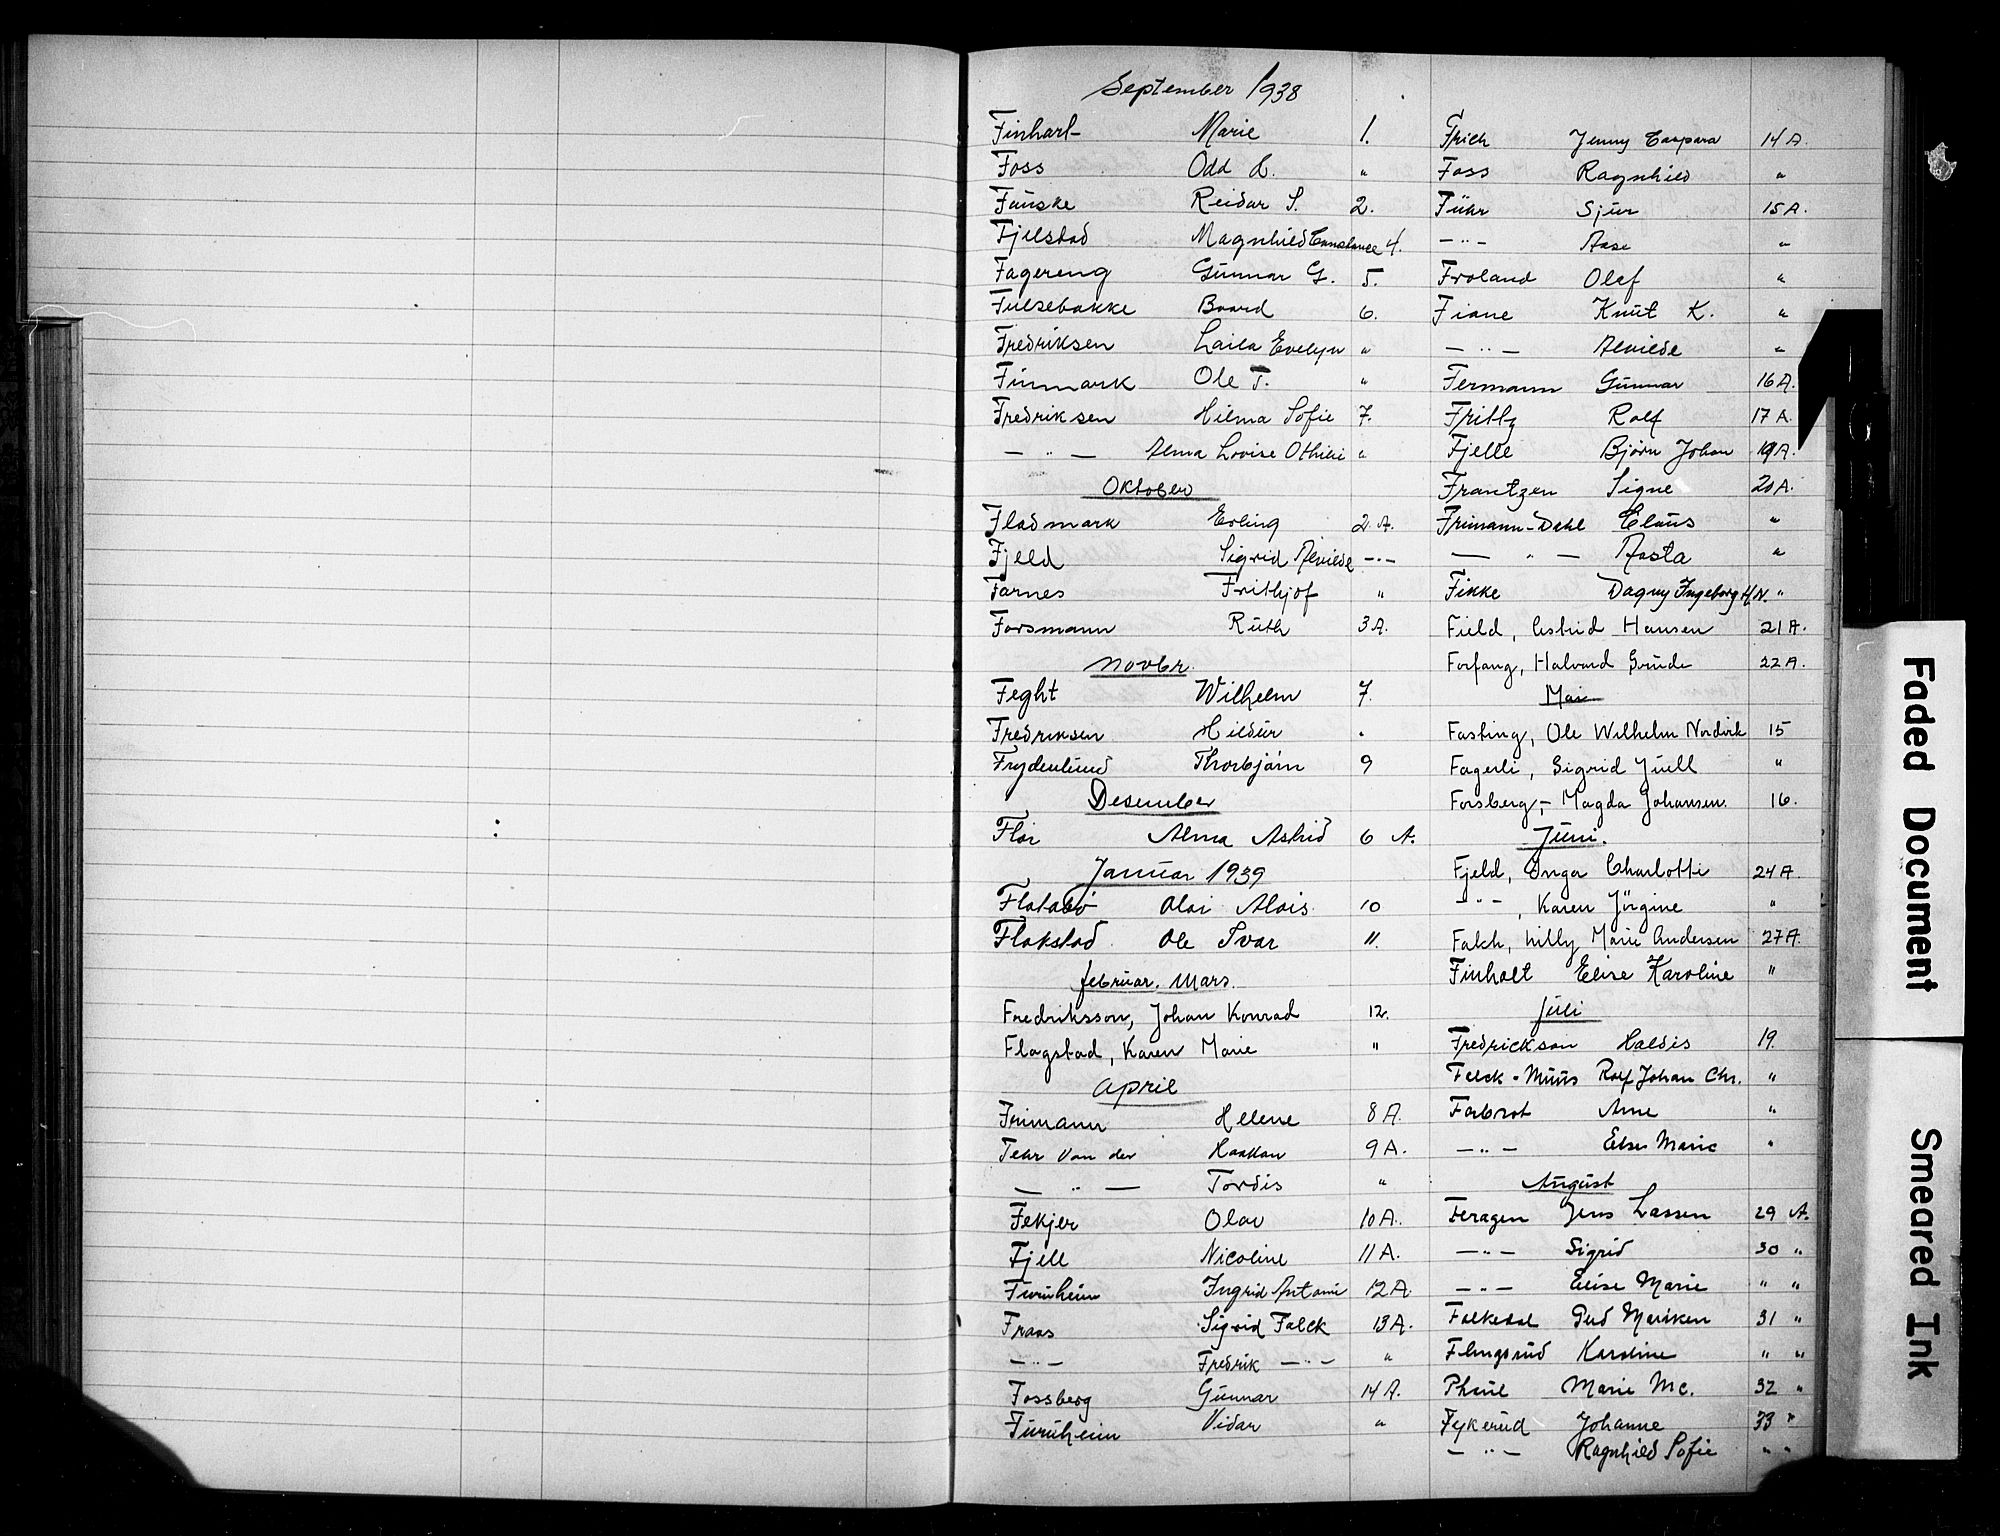 September 1938
Finhart Marie 1.
Foss Odd L. "
Fauske Reidar S. 2.
Fjelstad Magnhild Constance 4.
Fagereng Gunnar G. 5.
Fulsebakke Baard 6.
Fredriksen Laila Evelyn "
Finmark Ole T. "
Fredriksen Hilma Sofie 7.
— " — Alma Lovise Othilie "
Oktober
Fladmark Erling 2 A.
Fjeld Sigrid Alvilde — " —
Farnes Frithjof "
Forsmann Ruth 3 A.
Novbr.
Feght Wilhelm 7.
Fredriksen Hildur "
Frydenlund Thorbjørn 9
Desember
Flor Alma Astrid 6 A.
Januar 1939
Flatabø Olai Alois 10
Flakstad Ole Ivar 11.
februar. Mars.
Fredriksson, Johan Konrad 12.
Flagstad, Karen Marie "
April
Frimann Helene 8 A.
Fehr von der Haakon 9 A.
— " — Tordis "
Fekjer Olav 10 A.
Fjell Nicoline 11 A.
Furuheim Ingrid Antonie 12 A.
Fraas Sigrid Falck 13 A.
— " — Fredrik — " — "
Fossberg Gunnar 14 A.
Furuheim Vidar "
Frich Jenny Caspara 14 A.
Foss Ragnhild "
Führ Sjur 15 A.
— " — Aase "
Froland Olef "
Fiane Knut K. "
— " — Alvilde "
Fermann Gunnar 16 A.
Fritty Rolf 17 A.
Fjelle Bjørn Johan 19 A.
Frantzen Signe 20 A.
Frimann-Dahl Claus "
— " — Aasta "
Fikke Dagny Ingeborg H.N. "
Field, Astrid Hansen 21 A.
Forfang, Halvard Grude 22 A.
Mai
Fasting, Ole Wilhelm Nordvik 15
Fagerli, Sigrid Juell "
Forsberg,- Magda Johansen. 16.
Juni.
Fjeld, Inga Charlotte 24 A.
— " — , Karen Jörgine "
Falch, Willy Marie Andersen 27 A.
Finholt Elise Karoline "
Juli
Fredrickson Haldis 19.
Felck-Muus Rolf Johan Chr. "
Forbrot Arne "
— " — Else Marie "
August
Feragen Jens Lassen 29 A.
— " — Sigrid 30 "
— " — Elise Marie " "
Falkedal Gud Mariken 31 "
Flingsrud Karoline " "
Pheul Marie Mc. 32 "
Fykerud Johanne 33 "
— " — Ragnhild Sofie " "
Faded Document
Smeared Ink